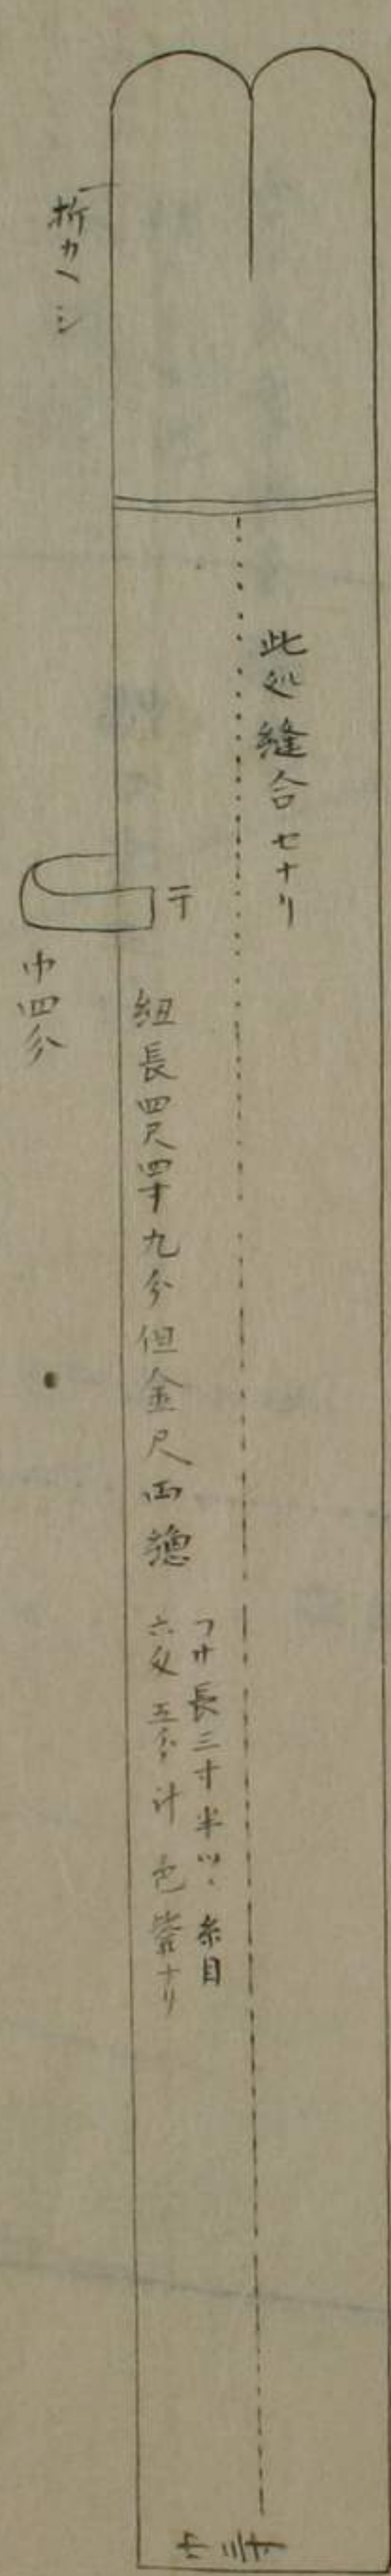 折カヘシ
此処縫合セナリ
巾四分
組長四尺四寸九分但金尺両
フサ長三寸半ツヽ糸目
六匁五分計色紫ナリ